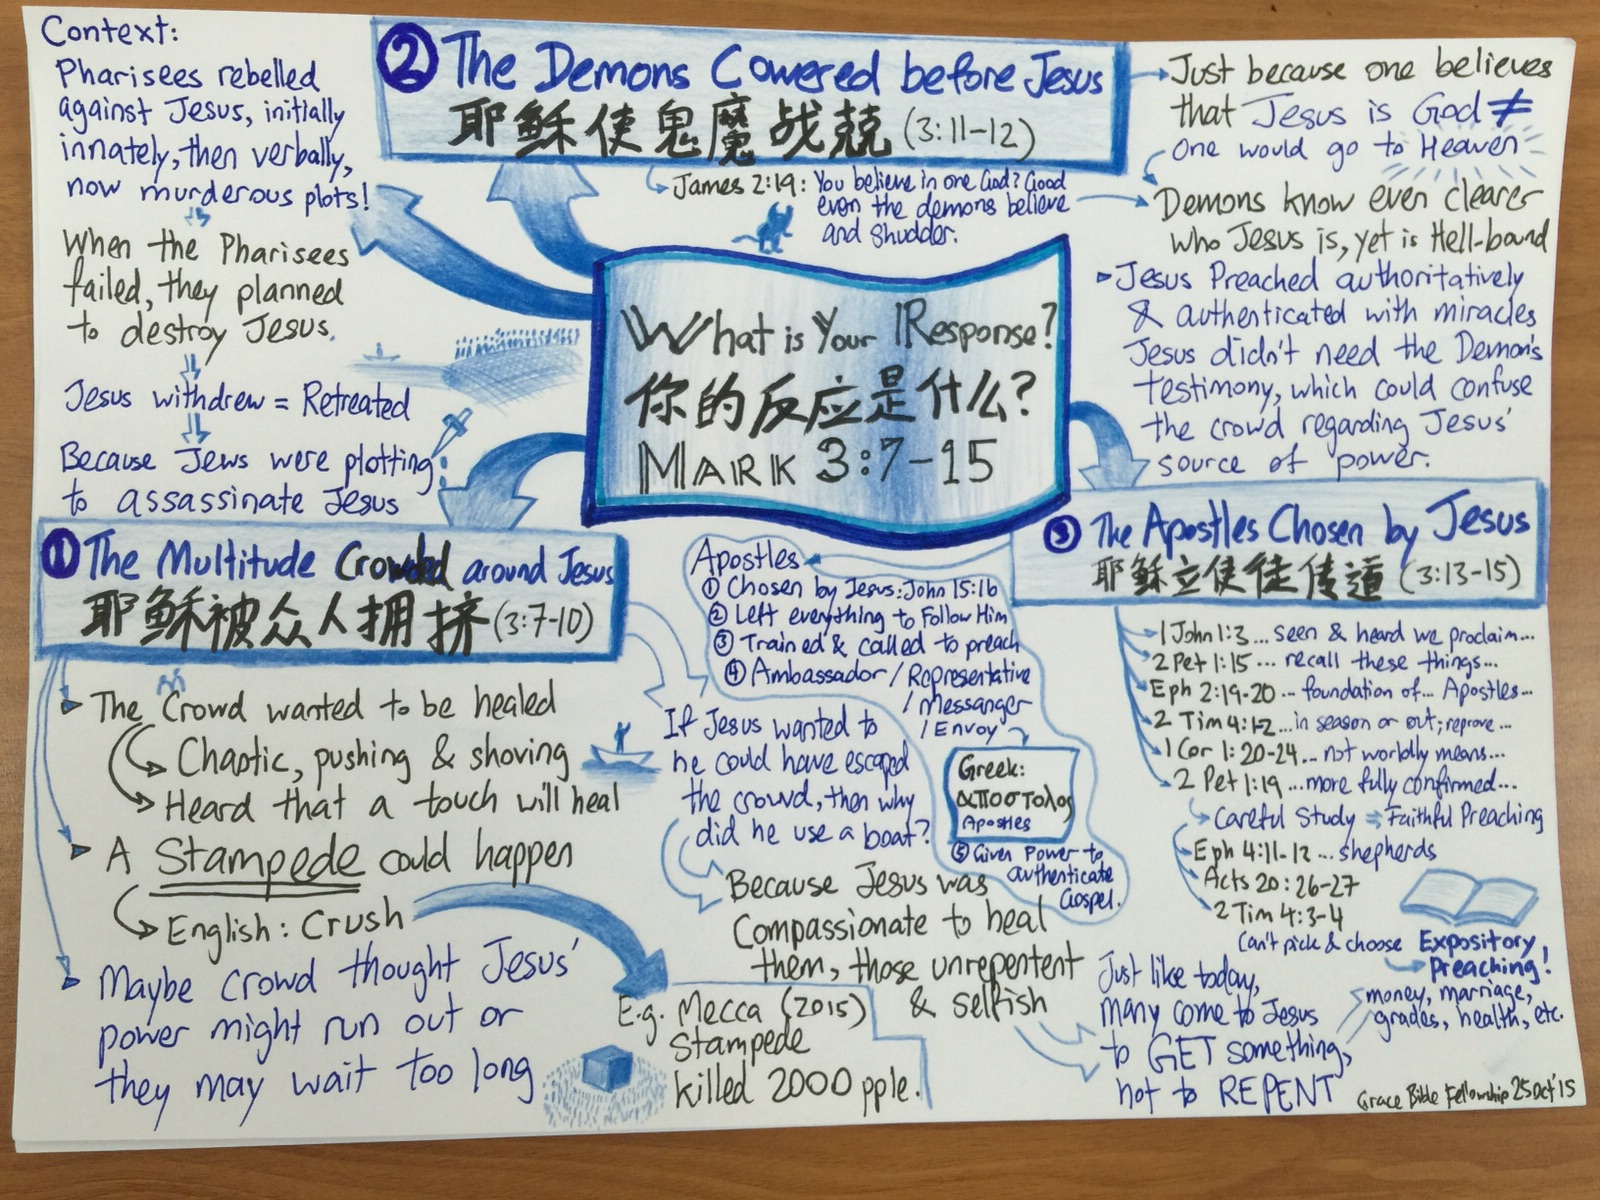 What is Your Response?
你的反应是什么?
MARK 3:7-15
Context:
Pharisees rebelled
against Jesus, initially
innately, then verbally,
now murderous plots!
When the Pharisees
failed, they planned
to destroy Jesus.
Jesus withdrew = Retreated
Because Jews were plotting
to assassinate Jesus
① The Multitude Crowded around Jesus
耶稣被众人拥挤 (3:7-10)
The Crowd wanted to be healed
Chaotic, pushing & shoving
Heard that a touch will heal
A Stampede could happen
English: Crush
Maybe crowd thought Jesus'
power might run out or
they may wait too long
E.g. Mecca (2015)
Stampede
killed 2000 pple.
If Jesus wanted to
he could have escaped
the crowd, then why
did he use a boat?
Because Jesus was
Compassionate to heal
them, those unrepentent
& selfish
Just like today,
many come to Jesus
to GET something,
not to REPENT
money, marriage,
grades, health, etc.
② The Demons Cowered before Jesus
耶稣使鬼魔战兢 (3:11-12)
James 2:19: You believe in one God? Good
even the demons believe
and shudder.
Just because one believes
that Jesus is God ≠
one would go to Heaven
Demons know even clearer
who Jesus is, yet is Hell-bound
Jesus Preached authoritatively
& authenticated with miracles
Jesus didn't need the Demon's
testimony, which could confuse
the crowd regarding Jesus'
source of power.
③ The Apostles Chosen by Jesus
耶稣立使徒传道 (3:13-15)
Apostles
① Chosen by Jesus: John 15:16
② Left everything to Follow Him
③ Trained & called to preach
④ Ambassador / Representative
/ Messanger
/ Envoy
Greek:
αποστολος
Apostles
⑤ Given Power to
authenticate
Gospel.
1 John 1:3 ... seen & heard we proclaim...
2 Pet 1:15 ... recall these things...
Eph 2:19-20 ... foundation of... Apostles...
2 Tim 4:1-2 ... in season or out; reprove...
1 Cor 1:20-24 ... not worldly means...
2 Pet 1:19 ... more fully confirmed...
Careful Study ⇒ Faithful Preaching
Eph 4:11-12 ... shepherds
Acts 20:26-27
2 Tim 4:3-4
Can't pick & choose
Expository
Preaching!
Grace Bible Fellowship 25 Oct '15